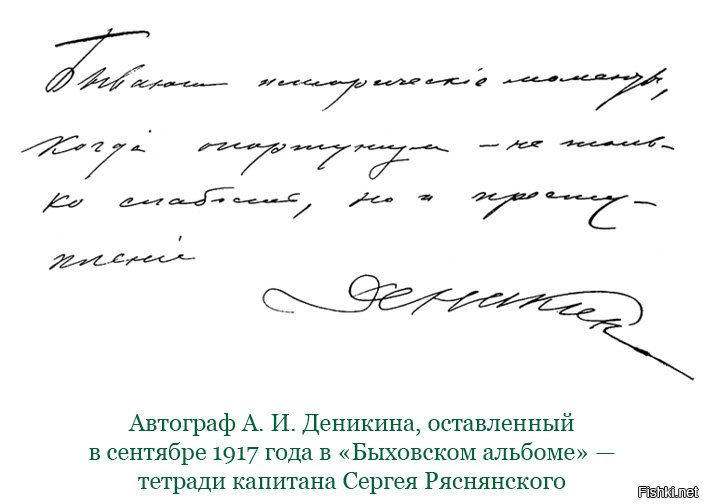 Бывают историческіе моменты,
когда опортунизм – не толь–
ко слабость, но и престу–
пленіе
Деникин
Автограф А. И. Деникина, оставленный
в сентябре 1917 года в «Быховском альбоме» —
тетради капитана Сергея Ряснянского
Fishki.net